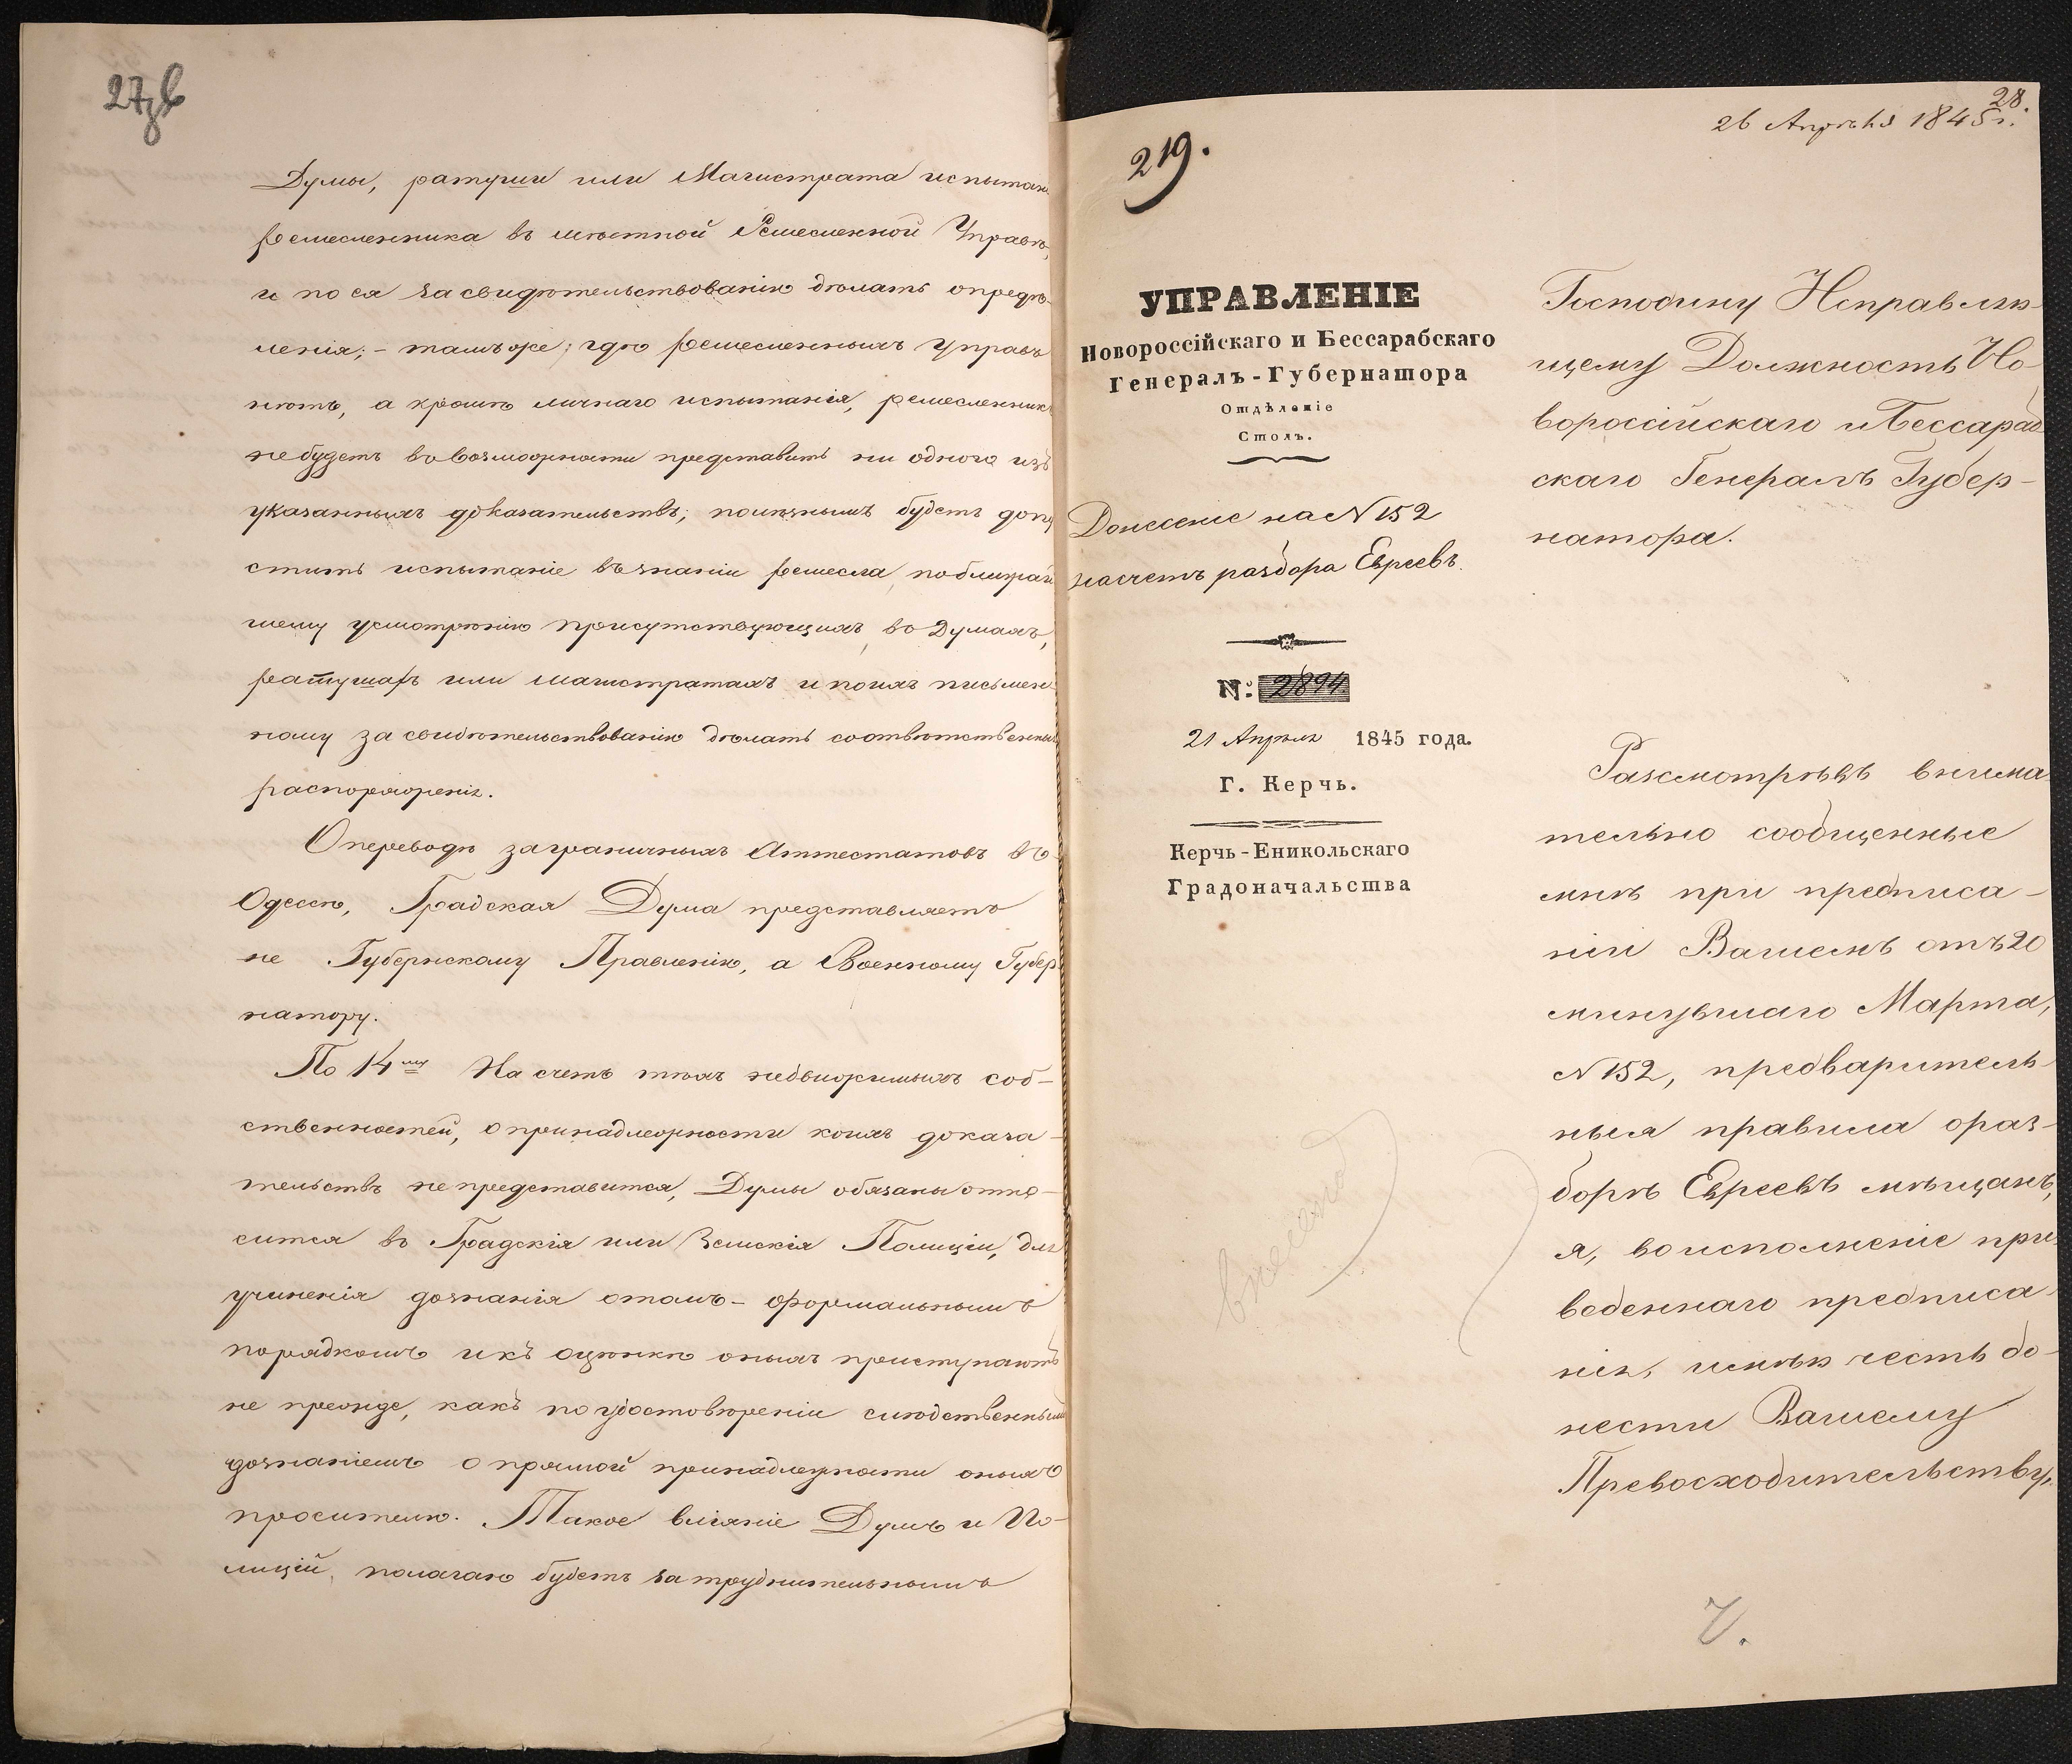 27об
Думы, ратуши или Магистрата испытан
ремесленника въ местной Ремесленной Управѣ,
и по ея засвидѣтельствованію дѣлать опредѣ-
ленія; – тамъ же, гдѣ ремесленныхъ управъ
нѣтъ, а кромѣ личнаго испытанія, ремесленник
не будетъ въ возможности представить ни одного изъ
указанныхъ доказательствъ, полезнымъ будетъ допу
стить испытаніе въ знаніи ремесла, по ближай
шему усмотрѣнію присутствующихъ въ Думахъ,
ратушахъ или магистратахъ и по ихъ письмен
ному засвидѣтельствованію дѣлать соотвѣтственныя
распоряженія.
О переводѣ заграничныхъ Аттестатовъ въ
Одессѣ, Градская Дума представляетъ
не Губернскому Правленію, а Военному Губер
натору.
По 14му На счетъ тѣхъ недвижимыхъ соб-
ственностей, о принадлежности коихъ доказа-
тельствъ не представится, Думы обязаны отно-
сится въ Градскія или Земскія Полиціи, для
учиненія дознанія о томъ – формальнымъ
порядкомъ и къ оцѣнкѣ оныхъ приступаютъ
не прежде, какъ по удостовѣреніи слѣдственнымъ
дознаніемъ о прямой принадлежности оныхъ
просителю. Такое вліяніе Думъ и По-
лицій, полагаю будетъ затруднительнымъ
28.
26 Апрѣля 1845 г.
219.
УПРАВЛЕНІЕ
Новороссійскаго и Бессарабскаго
Генералъ-Губернатора
Отдѣленіе
Столъ.
Донесеніе на N 152
насчетъ разбора Евреевъ.
N: 2894
21 Апрѣля 1845 года.
Г. Керчь.
Керчь-Еникольскаго
Градоначальства
внесено
Господину Исправляю-
щему Должность Но-
вороссійскаго и Бессараб
скаго Генералъ Губер-
натора.
Разсмотрѣвъ внима
тельно сообщенные
мнѣ при предписа-
ніи Вашемъ отъ 20
минувшаго Марта,
N 152, предваритель-
ныя правила о раз-
борѣ Евреевъ мѣщанъ,
я, во исполненіе при-
веденнаго предписа-
нія, имѣю честь до-
нести Вашему
Превосходительству.